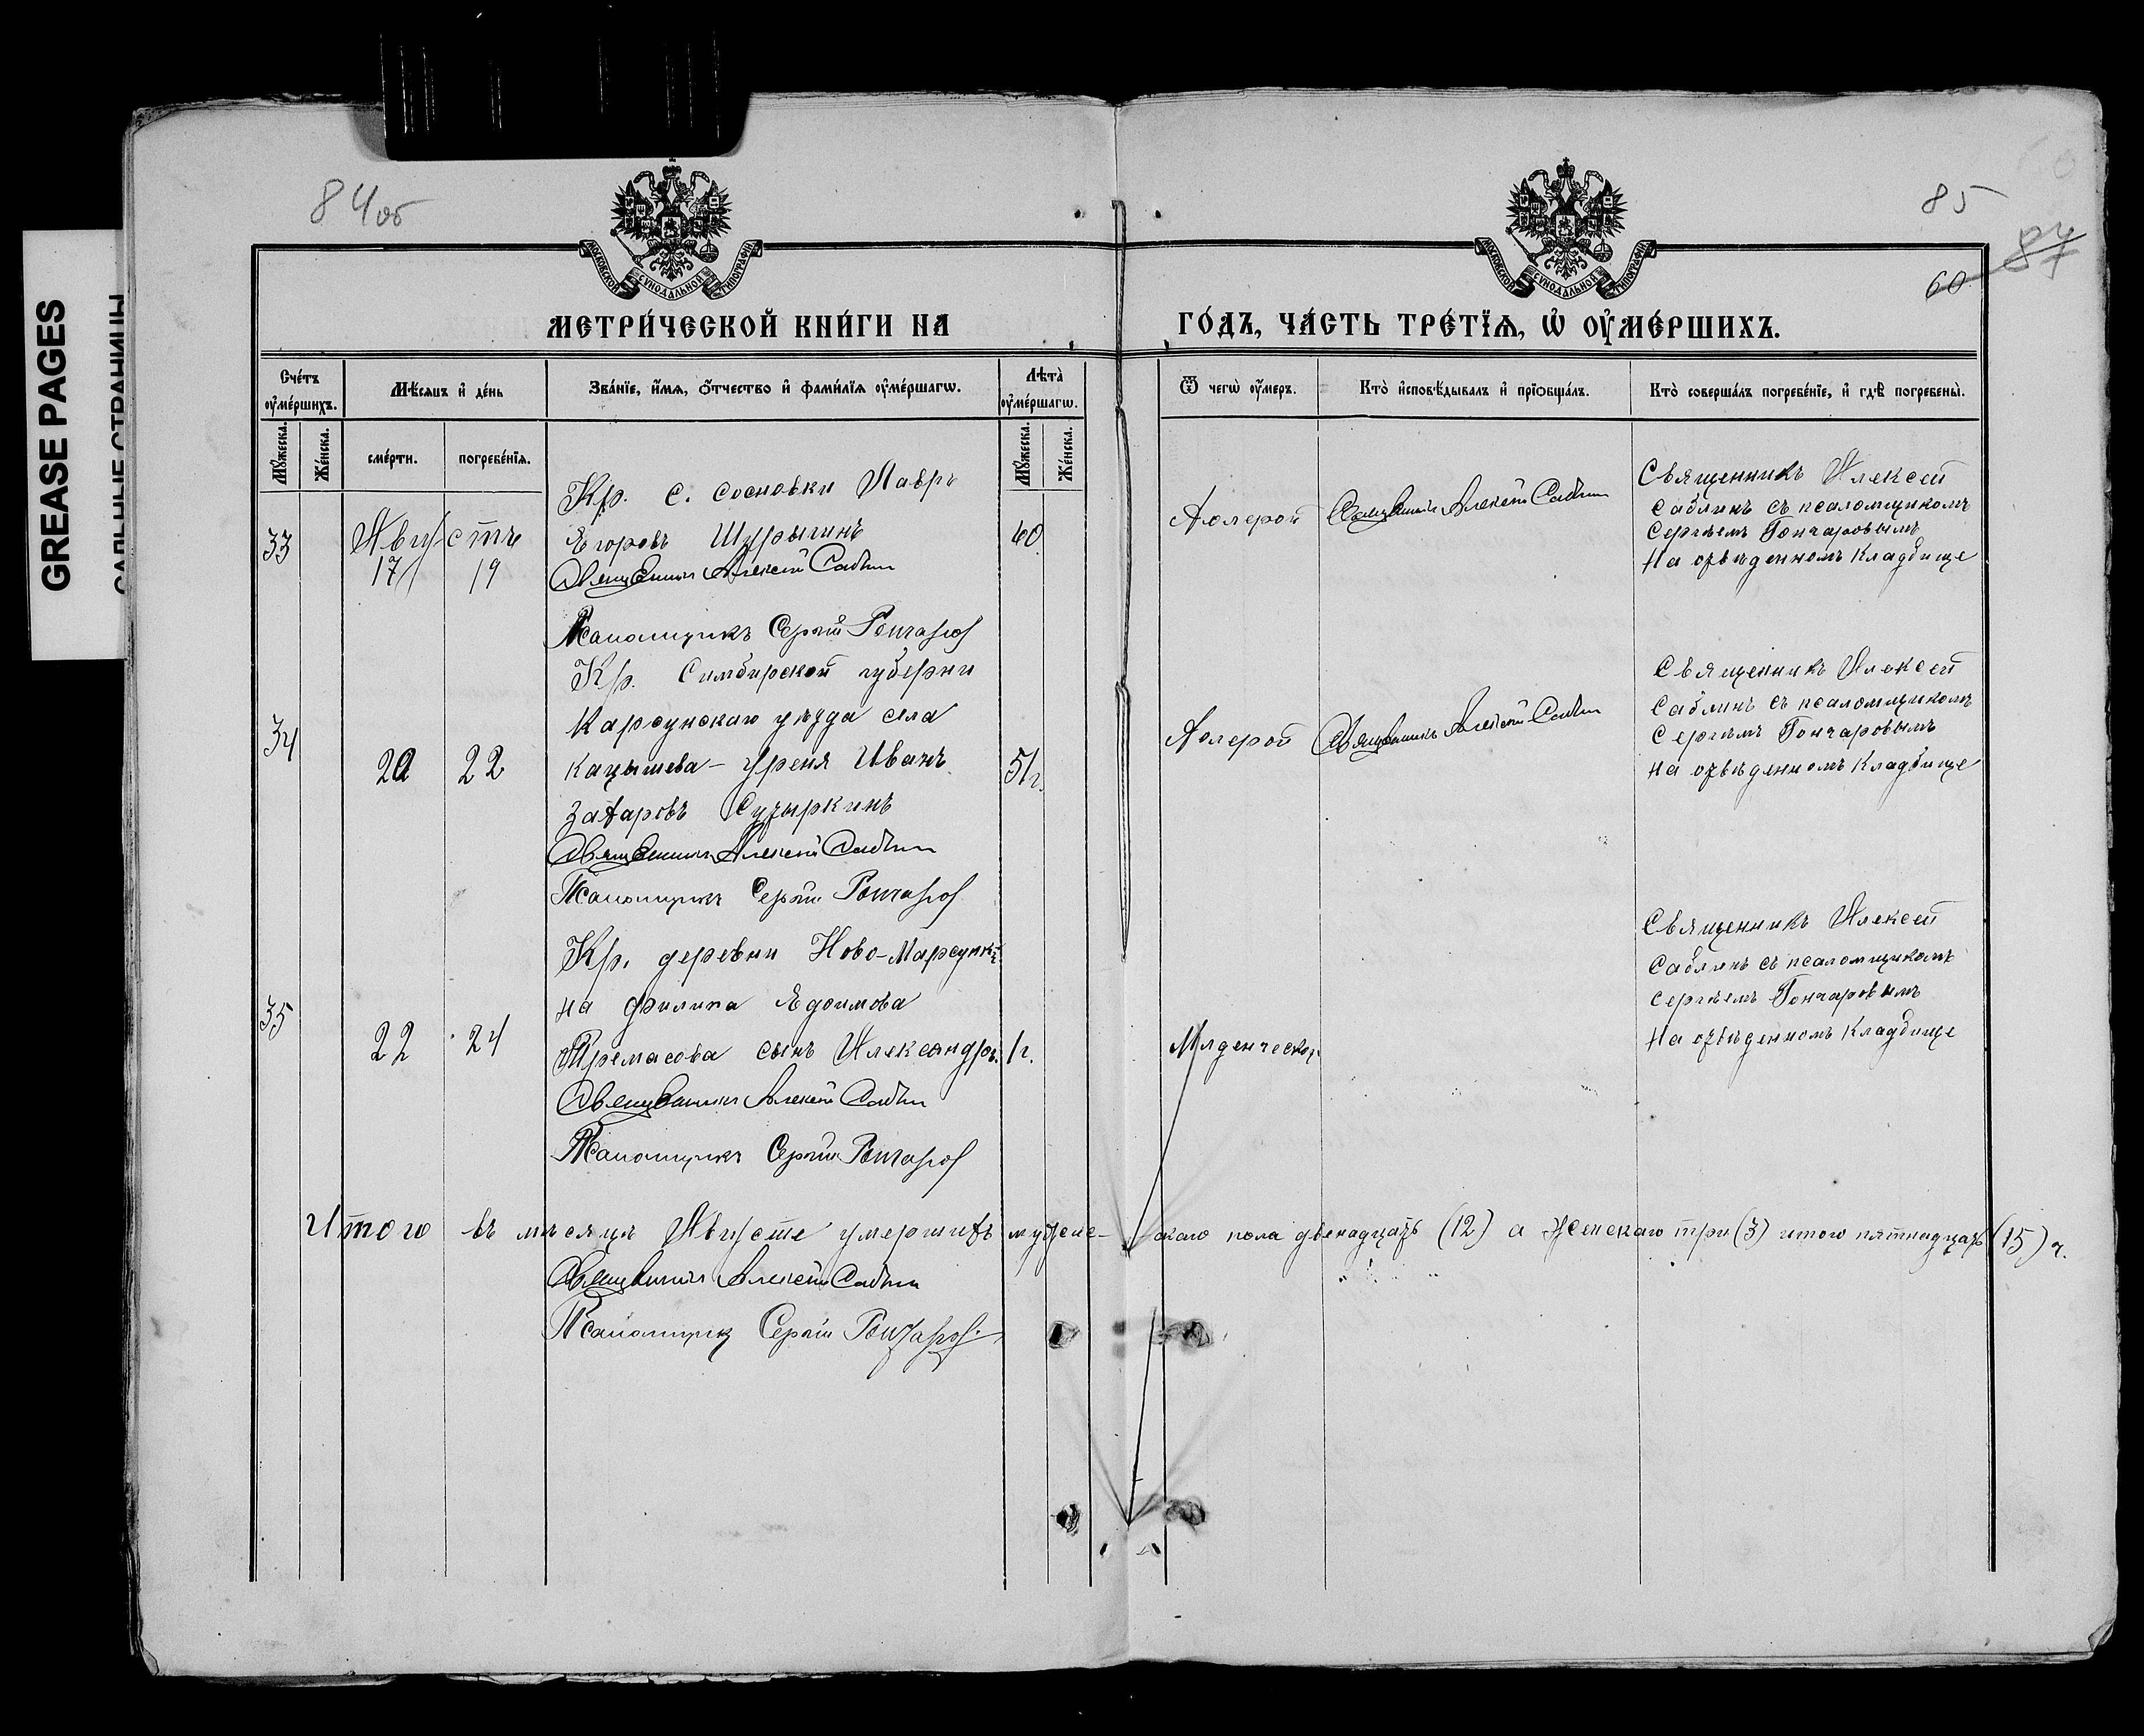 GREASE PAGES
САЛЬНЫЕ СТРАНИЦЫ
84об
85
87
60
МОСКОВСКОЙ СѴНОДАЛЬНОЙ ТИПОГРАФІИ
МОСКОВСКОЙ СѴНОДАЛЬНОЙ ТИПОГРАФІИ
МЕТРИ́ЧЕСКОЙ КНИ́ГИ НА
ГО́ДЪ, ЧА́СТЬ ТРЕ́ТЇѦ, Ѡ҆ ОУ҆МЕ́РШИХЪ.
Сче́тъ оу҆ме́ршихъ.
Мѣ́сяцъ и҆ де́нь
Зва́нїе, и҆́мя, ѻ҆́тчество и҆ фами́лїя оу҆ме́ршагѡ.
Лѣта̀ оу҆ме́ршагѡ.
Ѿ чегѡ̀ оу҆́меръ.
Кто̀ и҆сповѣ́дывалъ и҆ прїобща́лъ.
Кто̀ соверша́лъ погребе́нїе, и҆ гдѣ̀ погребены̀.
Мꙋ́жеска.
Же́нска.
сме́рти.
погребе́нїя.
Мꙋ́жеска.
Же́нска.
33
Августъ
17
19
Кр. с. Сосновки Лавръ
Егоровъ Шурыгинъ
Священникъ Алексій Саблин
Псаломщикъ Сергій Гончаров
60
Холерой
Священникъ Алексій Саблин
Священникъ Алексей
Саблинъ съ псаломщикомъ
Сергѣемъ Гончаровымъ
На отвѣденномъ Кладбище
34
20
22
Кр. Симбирской губерни
Карсунскаго уѣзда села
Уреня Иванъ
Захаровъ Сузыркинъ
Священникъ Алексій Саблин
Псаломщикъ Сергій Гончаров
51г.
Холерой
Священникъ Алексій Саблин
Священникъ Алексей
Саблинъ съ псаломщикомъ
Сергѣемъ Гончаровымъ
на отвѣденномъ Кладбище
35
22
24
Кр. деревни Ново-
на Филипа Ефимова
сынъ Александръ
Священникъ Алексій Саблин
Псаломщикъ Сергій Гончаров
1г.
Младенческой
Священникъ Алексей
Саблинъ съ псаломщикомъ
Сергѣемъ Гончаровымъ
На отвѣденномъ Кладбище
Итого въ мѣсяцѣ Августе умершихъ мужес-каго пола двенадцать (12) а Женскаго три (3) итого пятнадцать (15) ч.
Священникъ Алексій Саблин
Псаломщикъ Сергій Гончаров.